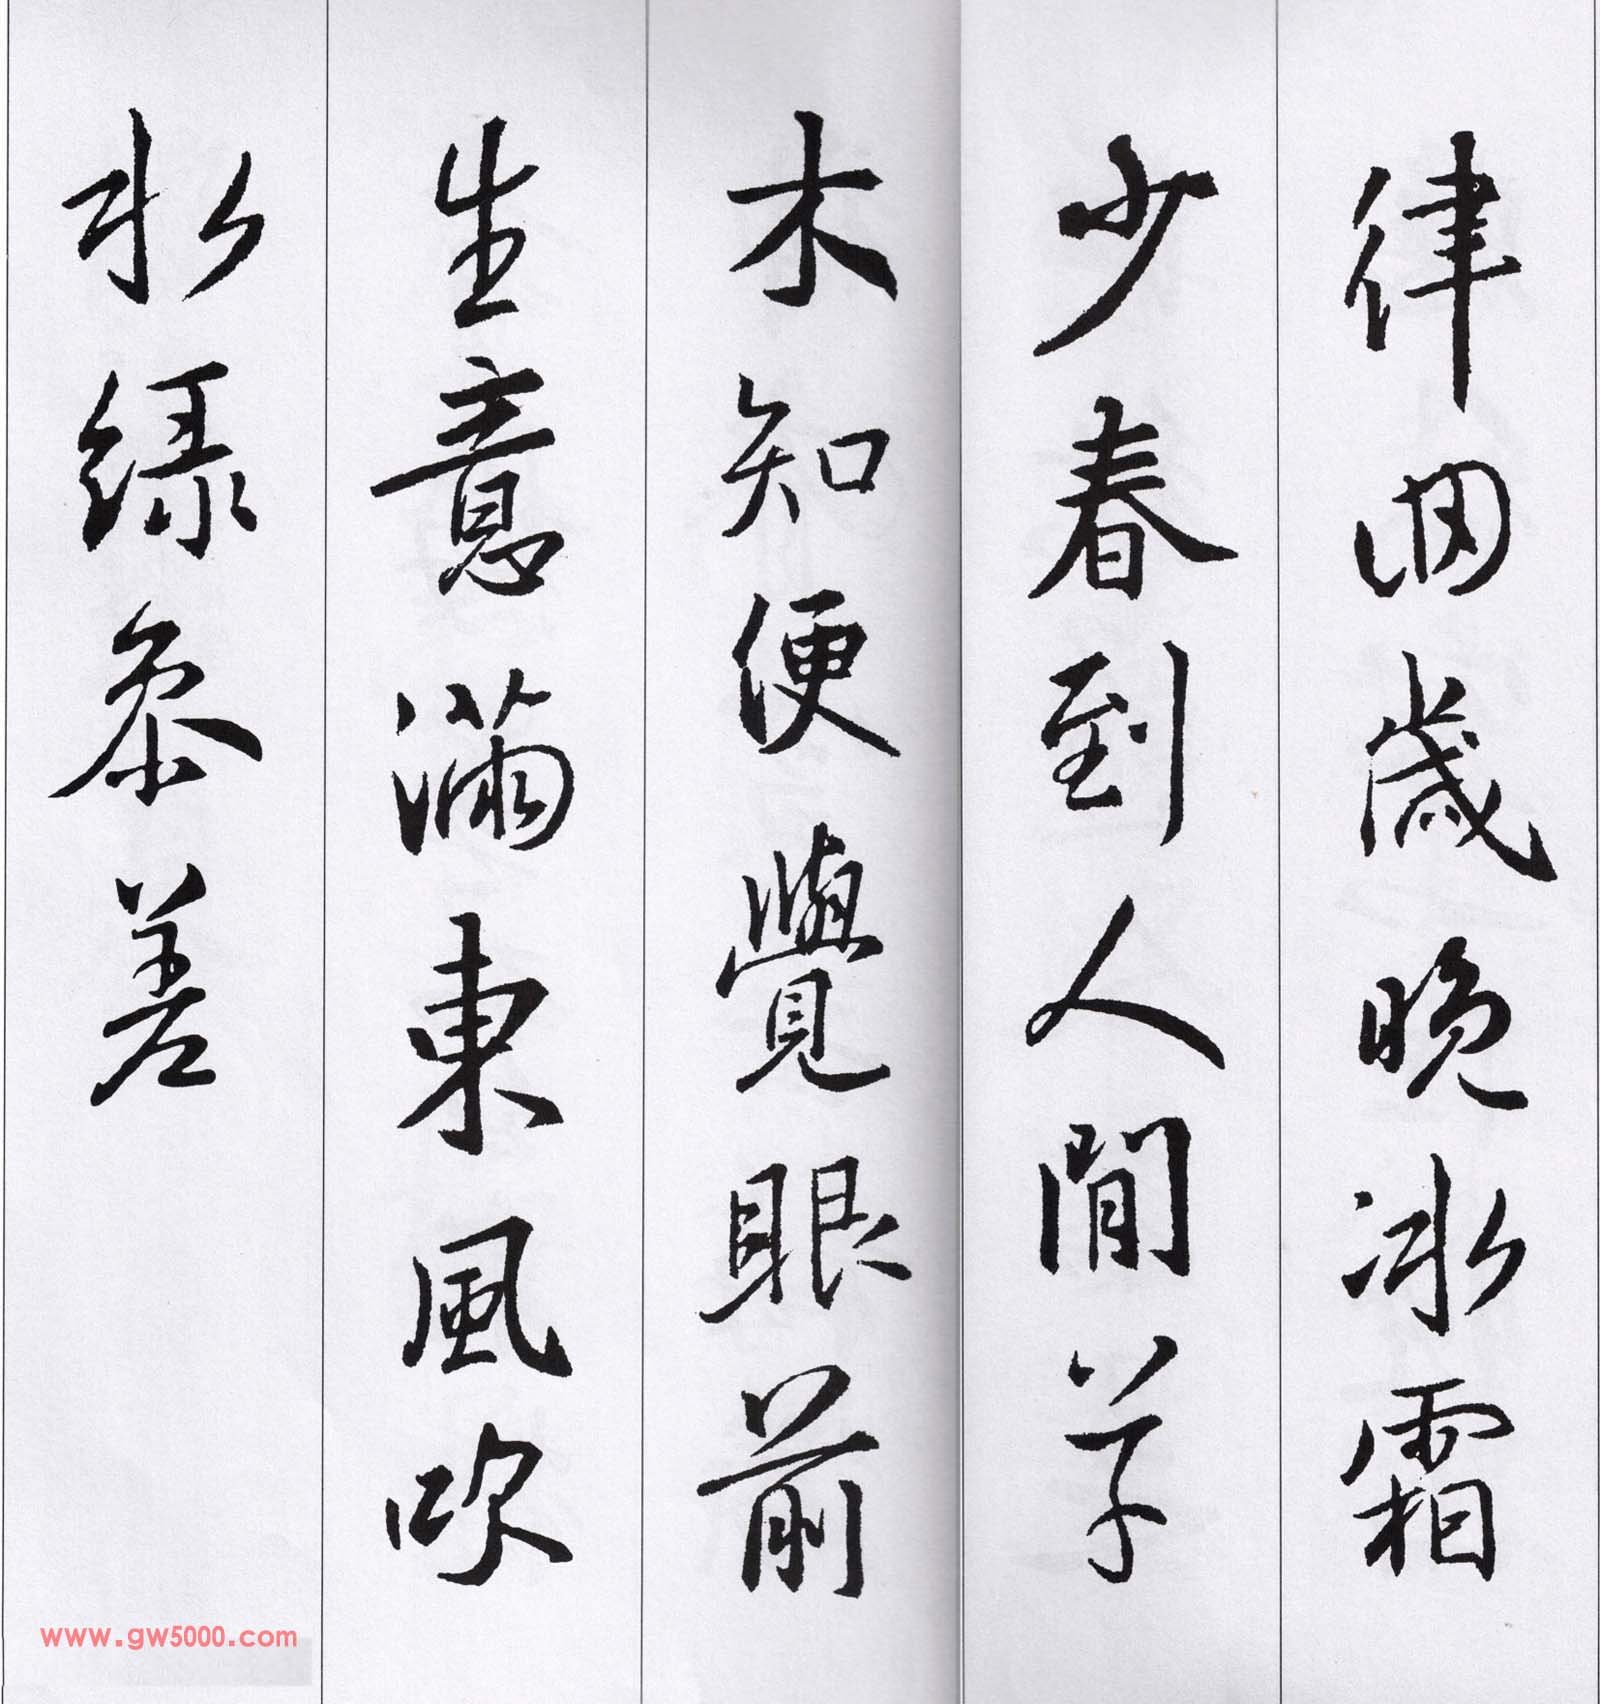 律回歲晚冰霜
少春到人間草
木知便覺眼前
生意滿東風吹
水綠參差
www.gw5000.com